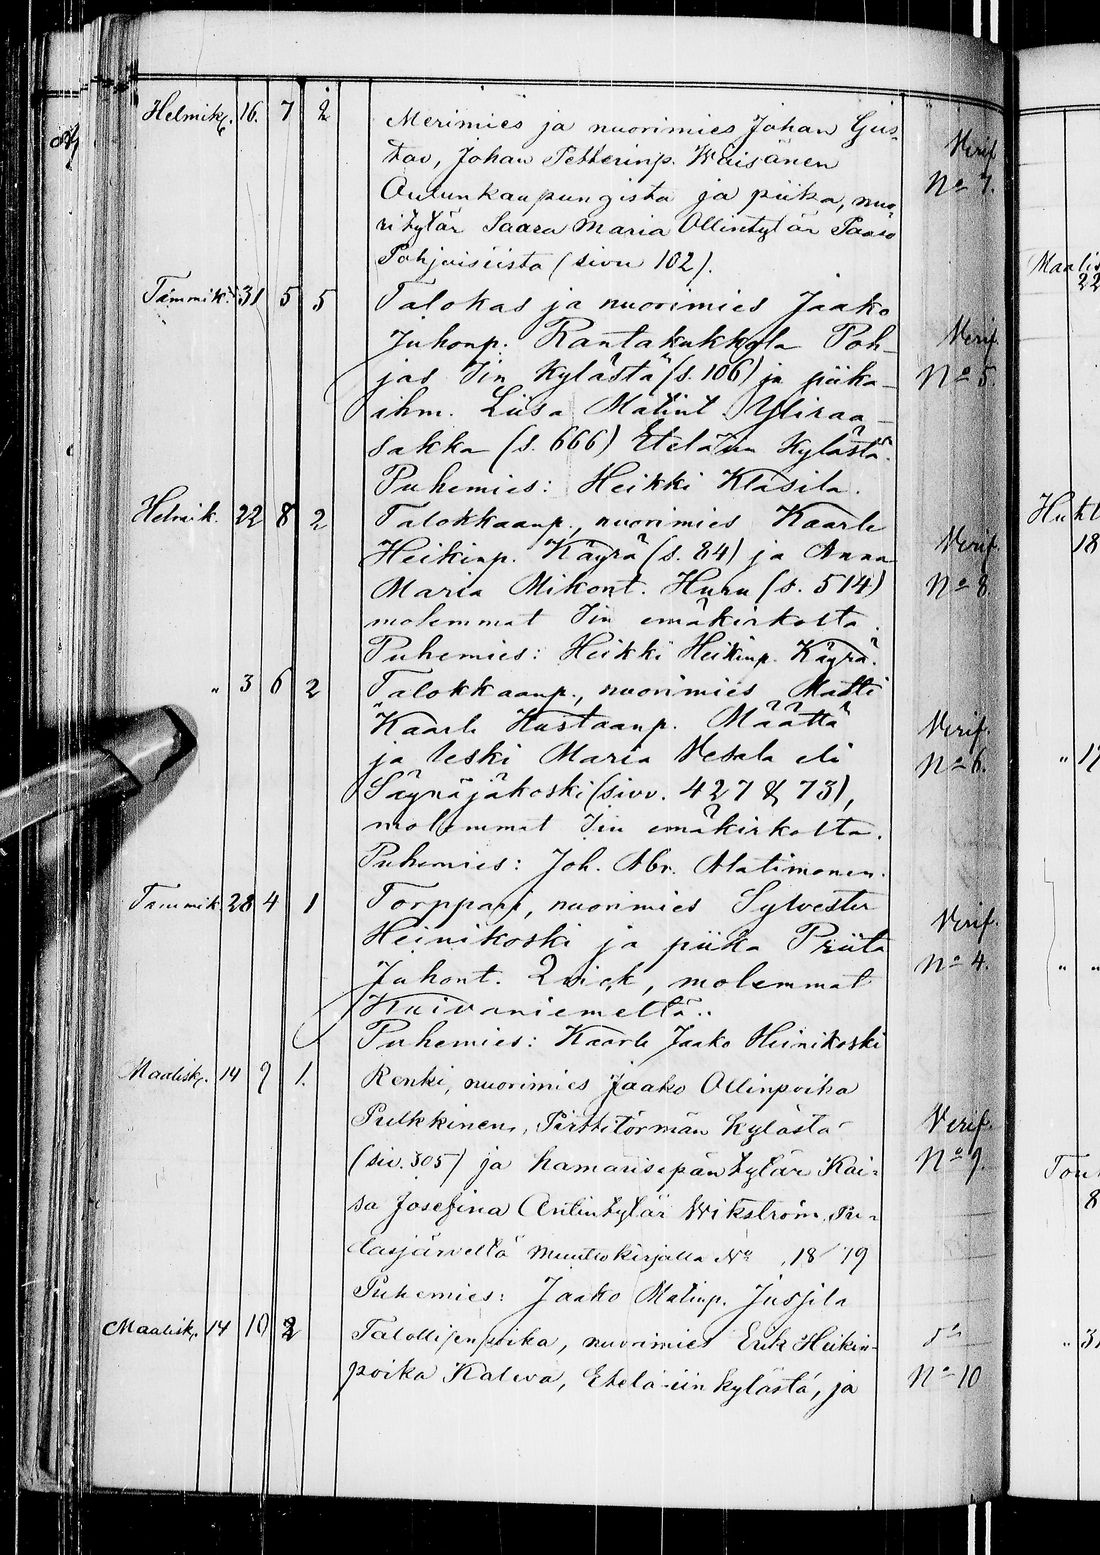 Helmik. 16. 7 2 Merimies ja nuorimies Johan Gus-
tav, Johan Petterinp. Waisänen Verif.
Oulunkaupungista ja piika, nuo- No 7.
ri tytär Saara Maria Ollintytär Paaso
Pohjaisiista (sivu 102).
Tammik. 31 5 5 Talokas ja nuorimies Jaako
Juhonp. Rantakukkola Poh- Verif.
jas Iin kylästä (s. 106) ja piika- No 5.
ihm. Liisa Matint. Yliraa-
sakka (s. 666) Etelä Iin kylästä.
Puhemies: Heikki Klasila.
Helmik. 22 8 2 Talokkaanp., nuorimies Kaarle
Heikinp. Käyrä (s. 84) ja Anna Verif.
Maria Mikont. Huru (s. 514) No 8.
molemmat Iin emäkirkolta.
Puhemies: Heikki Heikinp. Käyrä.
" 3 6 2 Talokkaanp., nuorimies Matti
Kaarle Kustaanp. Määttä Verif.
ja leski Maria Vesala eli No 6.
Säynäjäkoski (sivv. 427 & 73),
molemmat Iin emäkirkolta.
Puhemies: Joh. Abr. Alatimonen.
Tammik. 28 4 1 Torppari, nuorimies Sylvester Verif.
Heinikoski ja piika Priita No 4.
Juhont. Qvick, molemmat
Kuivaniemeltä.
Puhemies: Kaarle Jaako Heinikoski
Maalisk. 14 9 1. Renki, nuorimies Jaako Ollinpoika
Pulkkinen, Pirttitörmän kylästä Verif.
(siv. 305) ja hamarisepän tytär Kai- No 9.
sa Josefina Antintytär Wikström, Pu-
dasjärveltä muuttokirjalla No 18/79
Puhemies: Jaako Matinp. Jussila
Maalisk. 14 10 2 Talollisenpoika, nuorimies Erik Heikin- do
poika Kaleva, Etelä-iin kylästä, ja No 10
Maalis
22
18
" 17
" "
8
" 31